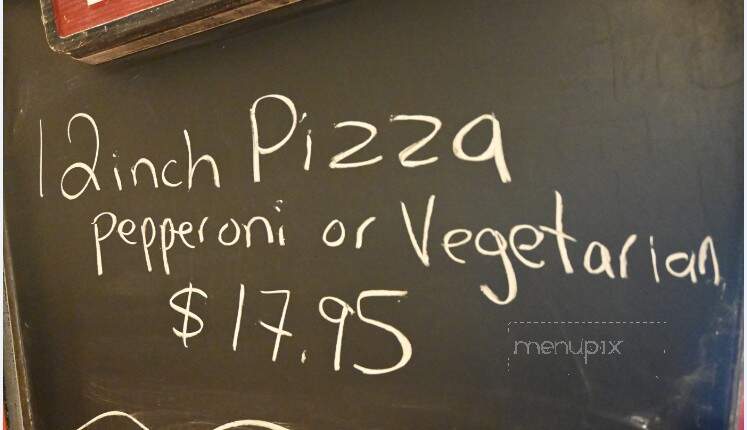 12inch Pizza
pepperoni or Vegetarian
$17.95
menupix